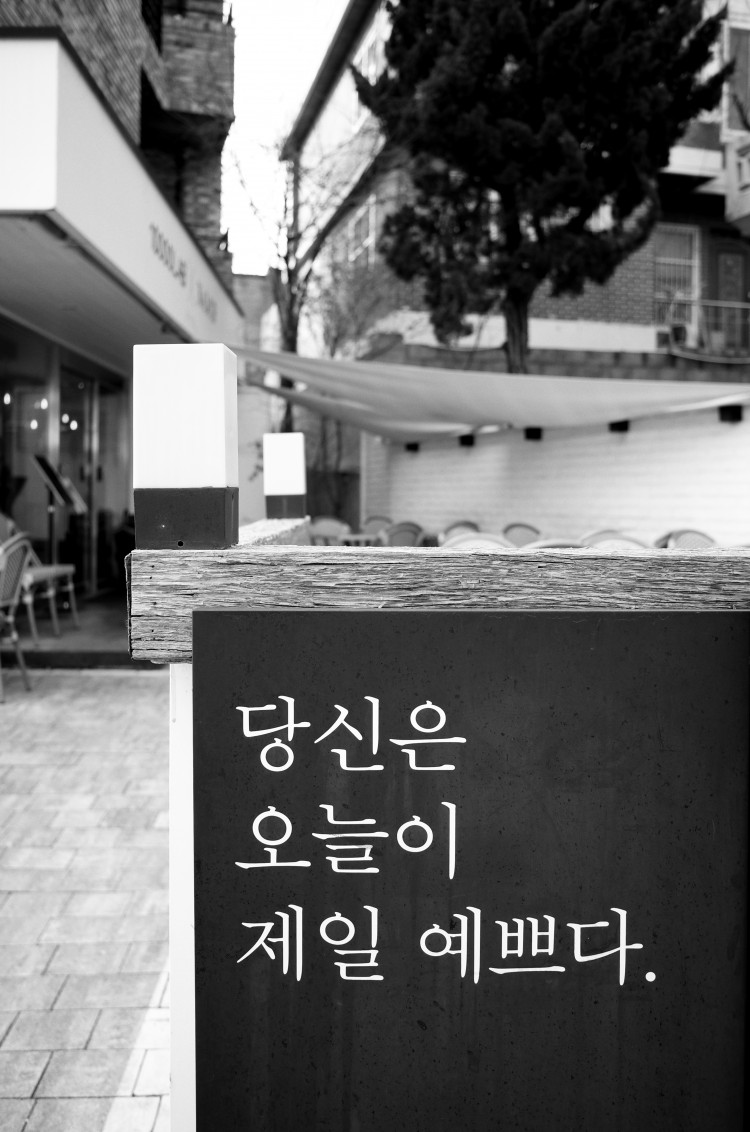 당신은
오늘이
제일 예쁘다.